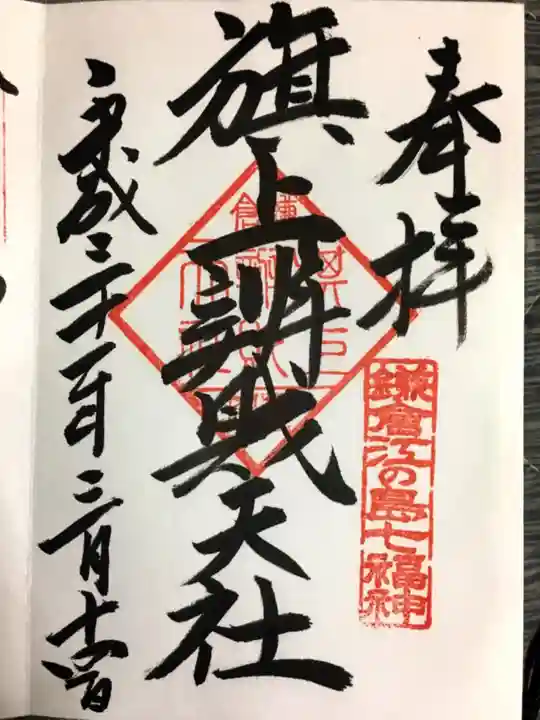 奉拝
鎌倉江の島七福神
旗上辨財天社
平成三十一年三月十六日